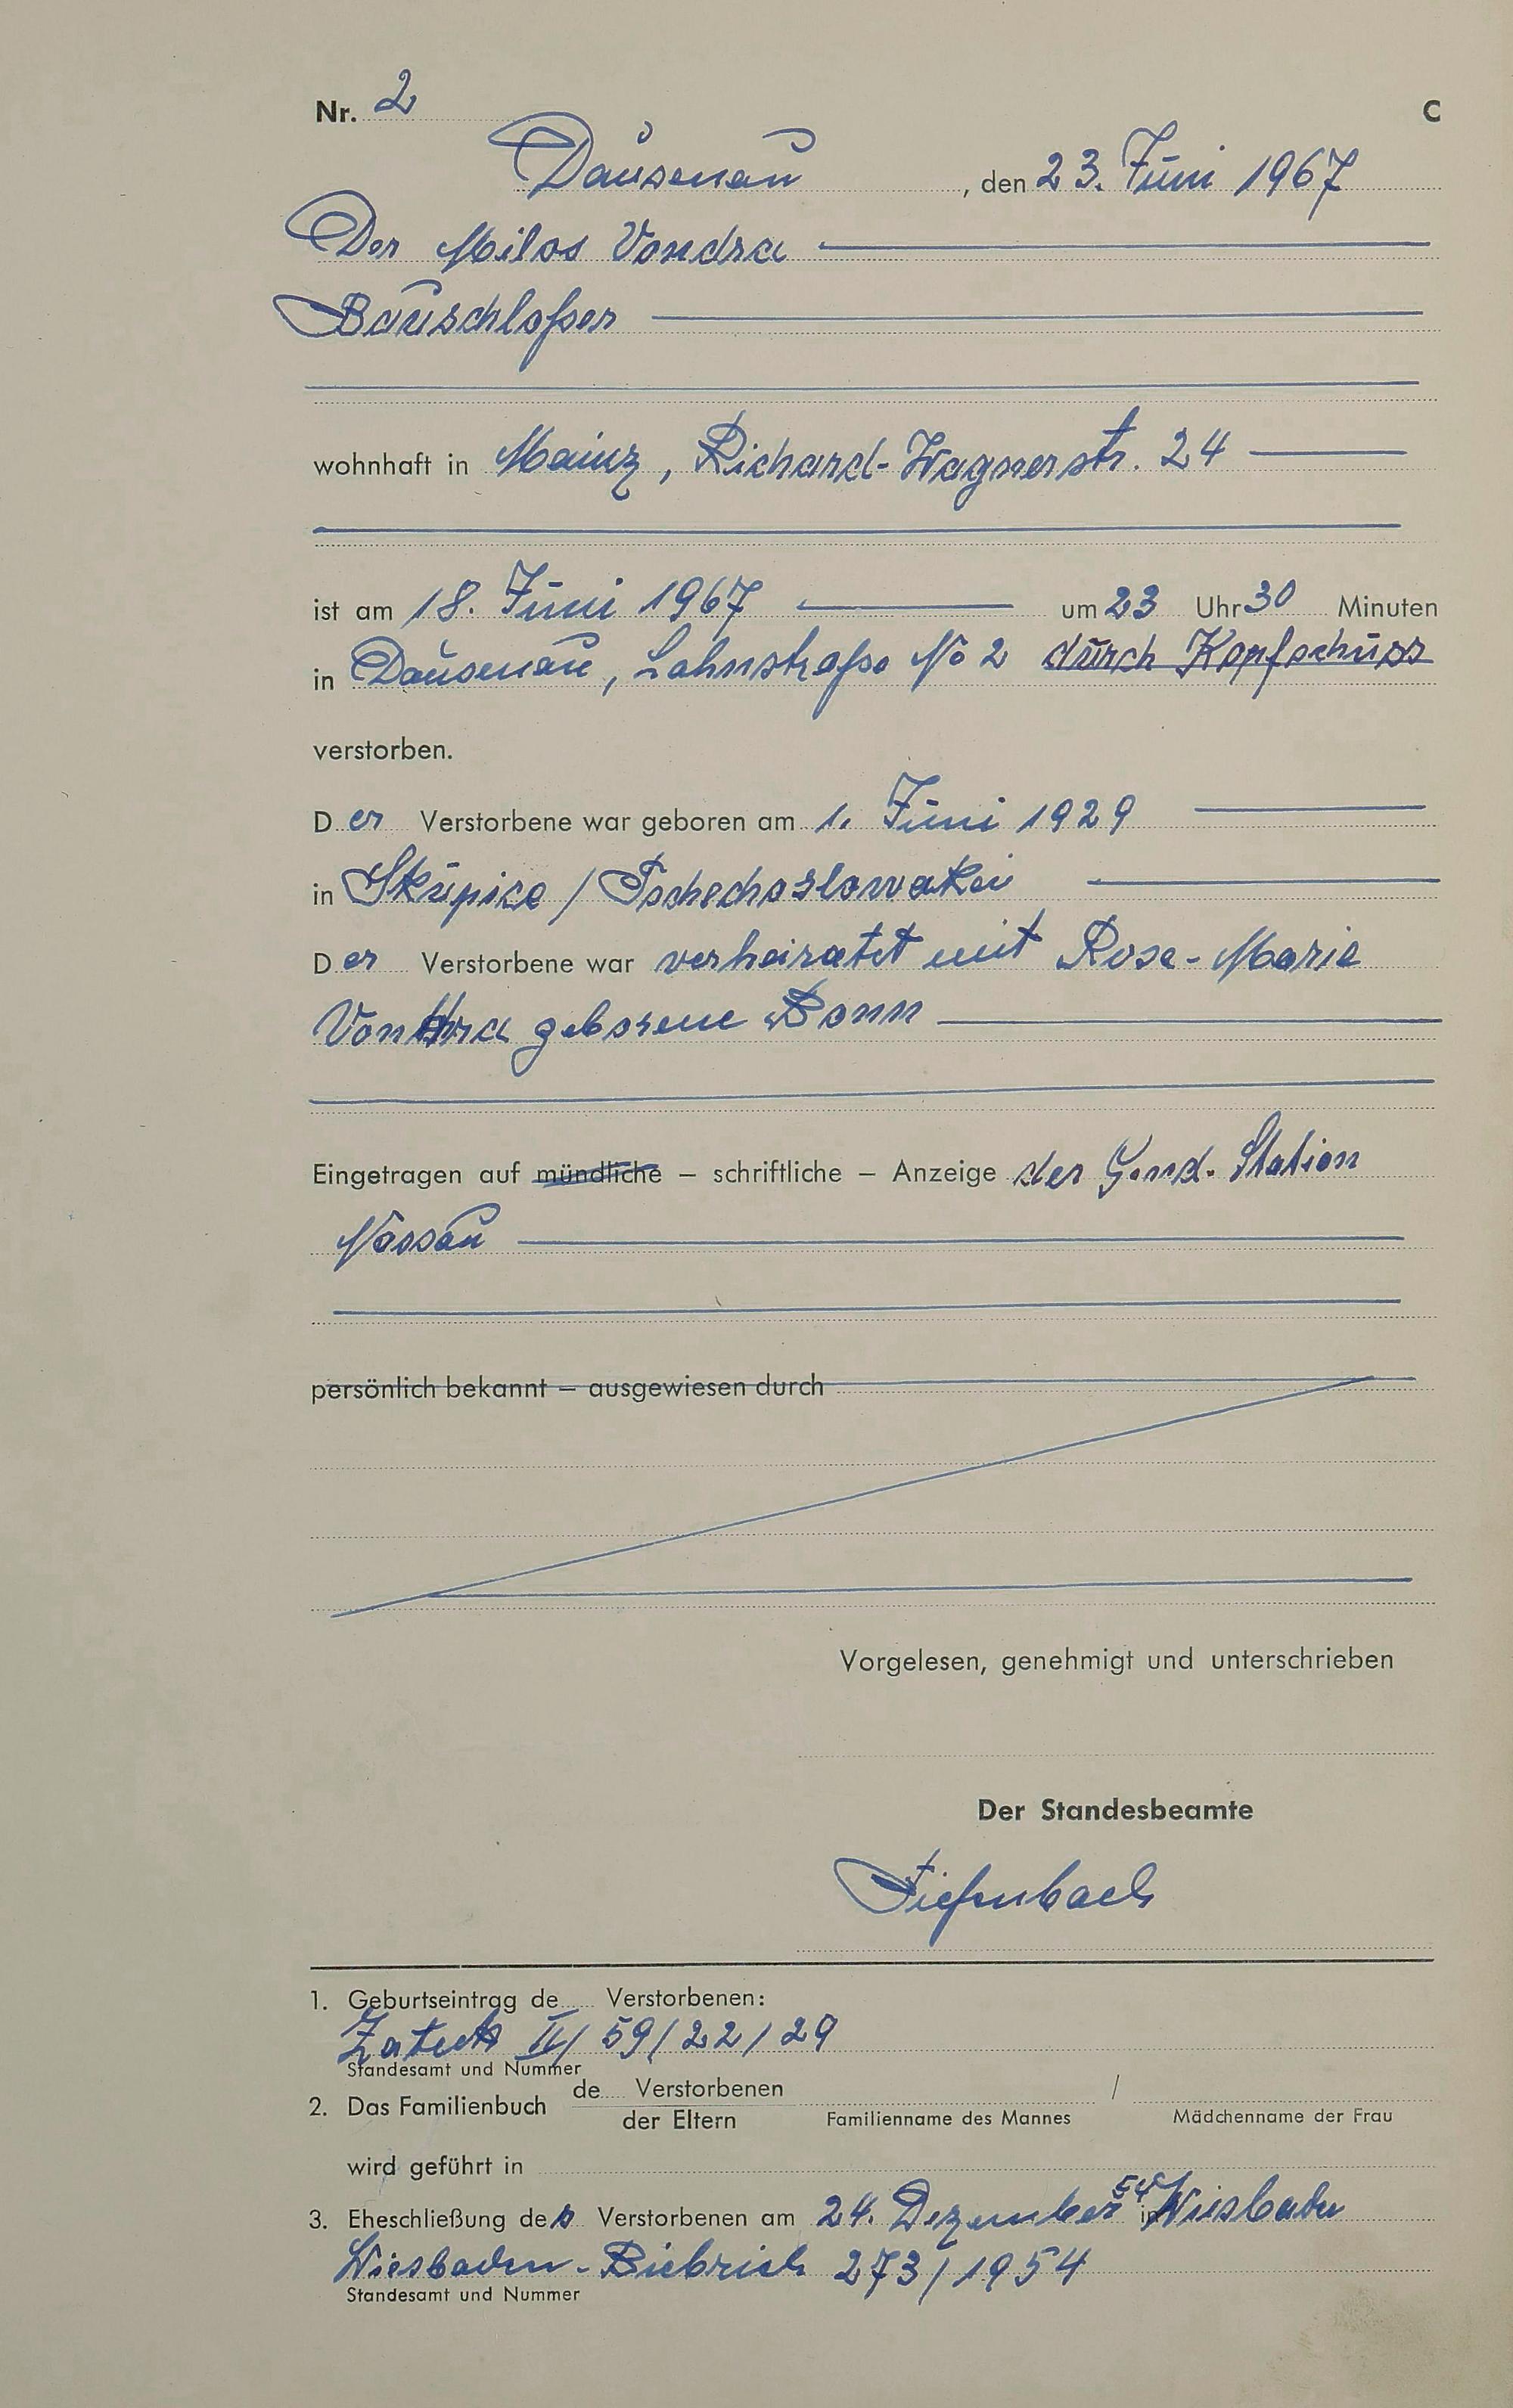 Nr. 2 C
Dausenau, den 23. Juni 1967
Der Milos Vondra
Bauschloßer
wohnhaft in Mainz, Richard-Wagnerstr. 24
ist am 18. Juni 1967 um 23 Uhr 30 Minuten
in Dausenau, Lahnstraße No 2 durch Kopfschuss
verstorben.
Der Verstorbene war geboren am 1. Juni 1929
in Skupice / Tschechoslowakei
Der Verstorbene war verheiratet mit Rose-Marie
Vondra geborene Bonn
Eingetragen auf mündliche – schriftliche – Anzeige der Gend. Station
Nassau
persönlich bekannt – ausgewiesen durch
Vorgelesen, genehmigt und unterschrieben
Der Standesbeamte
Tiefenbach
1. Geburtseintrag de Verstorbenen:
II/ 59/22/29
Standesamt und Nummer
2. Das Familienbuch de Verstorbenen /
der Eltern Familienname des Mannes Mädchenname der Frau
wird geführt in
3. Eheschließung des Verstorbenen am 24. Dezember 54 in Wiesbaden
Wiesbaden-Biebrich 273/1954
Standesamt und Nummer